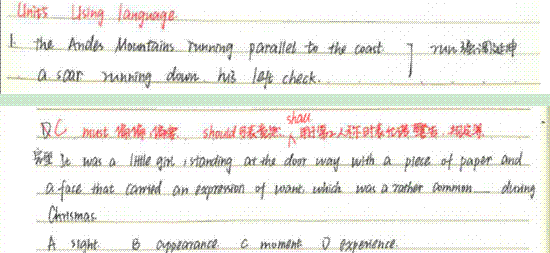 Unit5 Using language
1. the Andes Mountains running parallel to the coast ] run 强调延伸
a scar running down his left cheek.
D C must 偏偏, 偏要, should 表示 shall 用于第2人称时表 警告
It was a little girl, standing at the door way with a piece of paper and
a face that carried an expression of want, which was a rather common ___ during
Chrismas
A sight B appearance C moment D experience